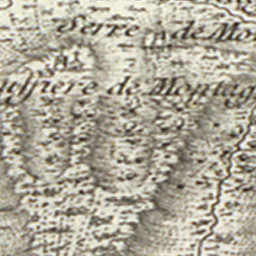 Serre de Mo
ssiere de Montag